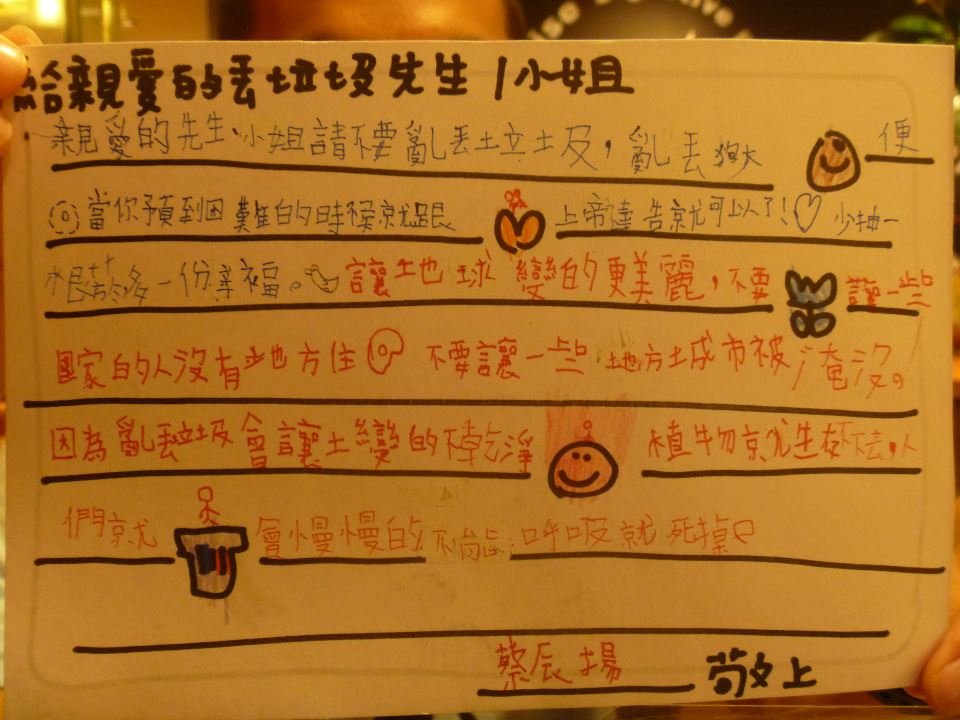 給親愛的丟垃圾先生/小姐
親愛的先生、小姐請不要亂丟垃圾，亂丟狗大便
當你預到困難的時候就跟上帝達告就可以了！少抽一
根菸多一份幸福。讓地球變的更美麗，不要讓一些
國家的人沒有地方住 不要讓一些地方土城市被淹沒。
因為亂丟垃圾會讓土變的不乾淨 植物就生存不下去，人
們就會慢慢的不能呼吸就死掉
蔡辰揚 敬上